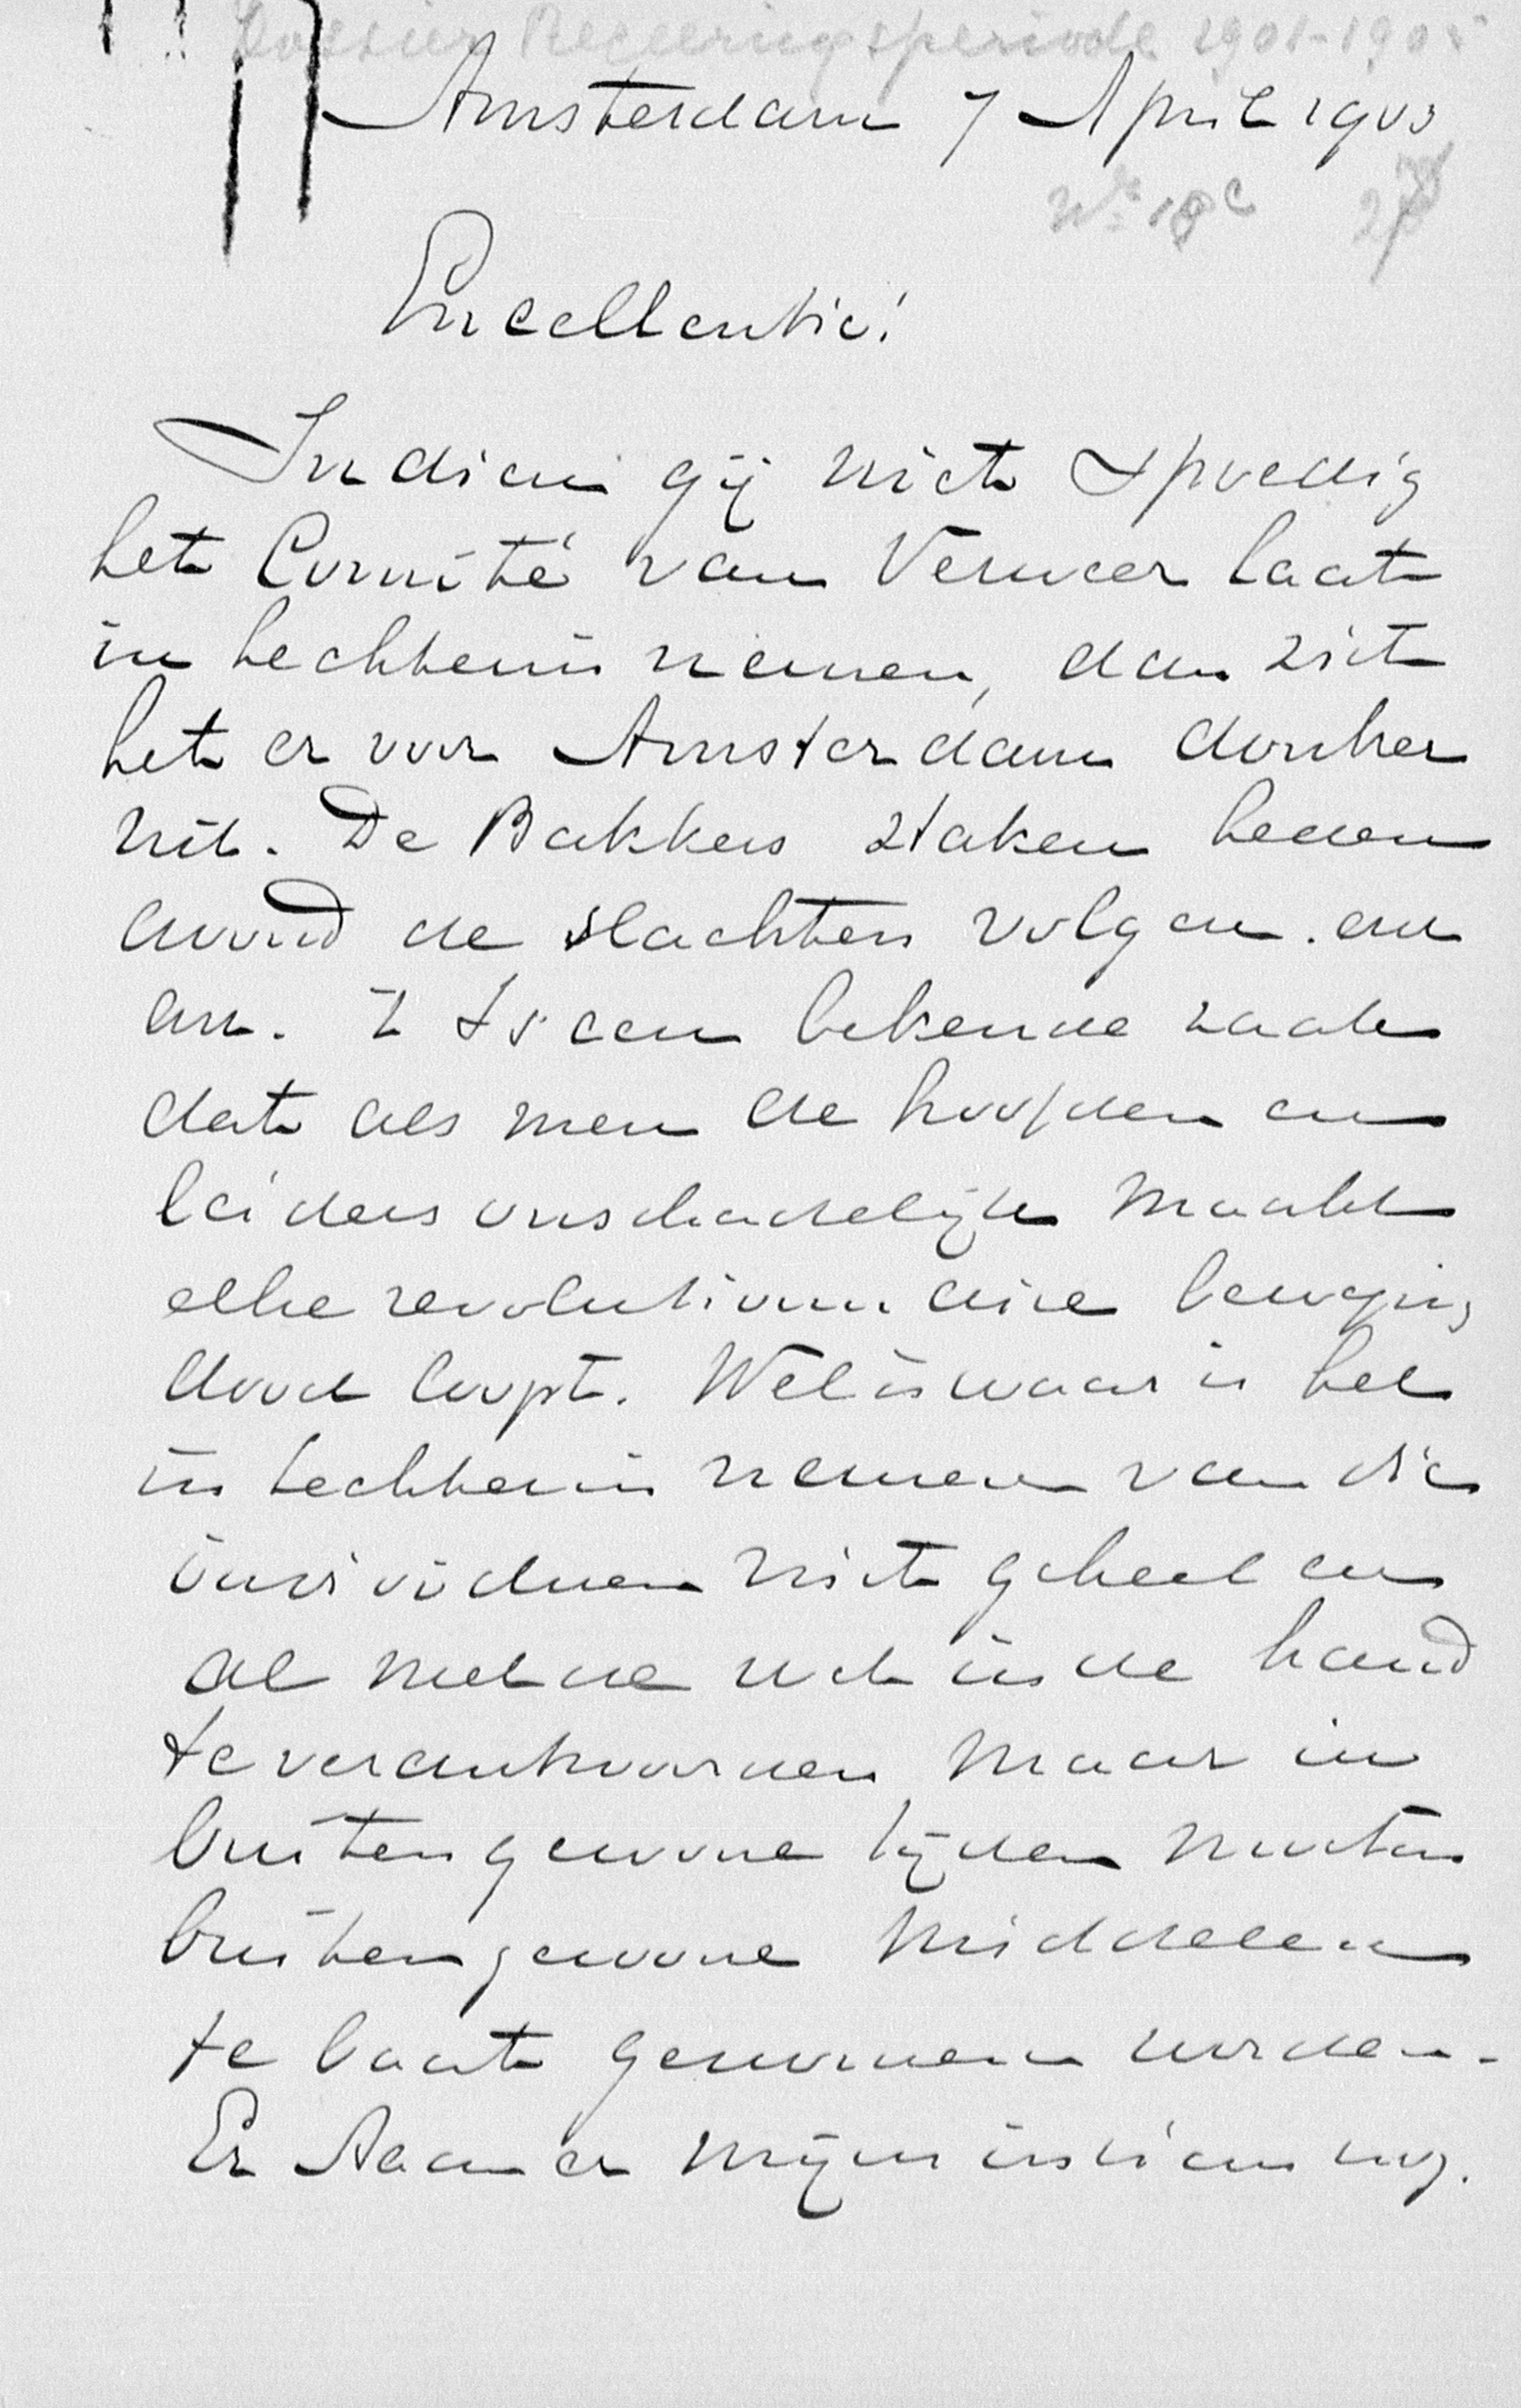 Dossier Regeeringsperiode 1901-1905
Amsterdam 7 April 1903
No 18c
Excellentie!
Indien gij niet spoedig
het Comité van Verweer laat
in hechtenis nemen, dan ziet
het er voor Amsterdam donker
uit. De Bakkers staken heden
avond de slachters volgen. enz
enz. 't Is een bekende zaak
dat als men de hoofden en
leiders onschadelijk maakt
elke revolutionnaire beweging
dood loopt. Weliswaar is het
in hechtenis nemen van die
individuen niet geheel en
al met de wet in de hand
te verantwoorden maar in
buitengewone tijden moeten
buitengewone middelen
te baat genomen worden.
Er staan er mijns insiens nog.